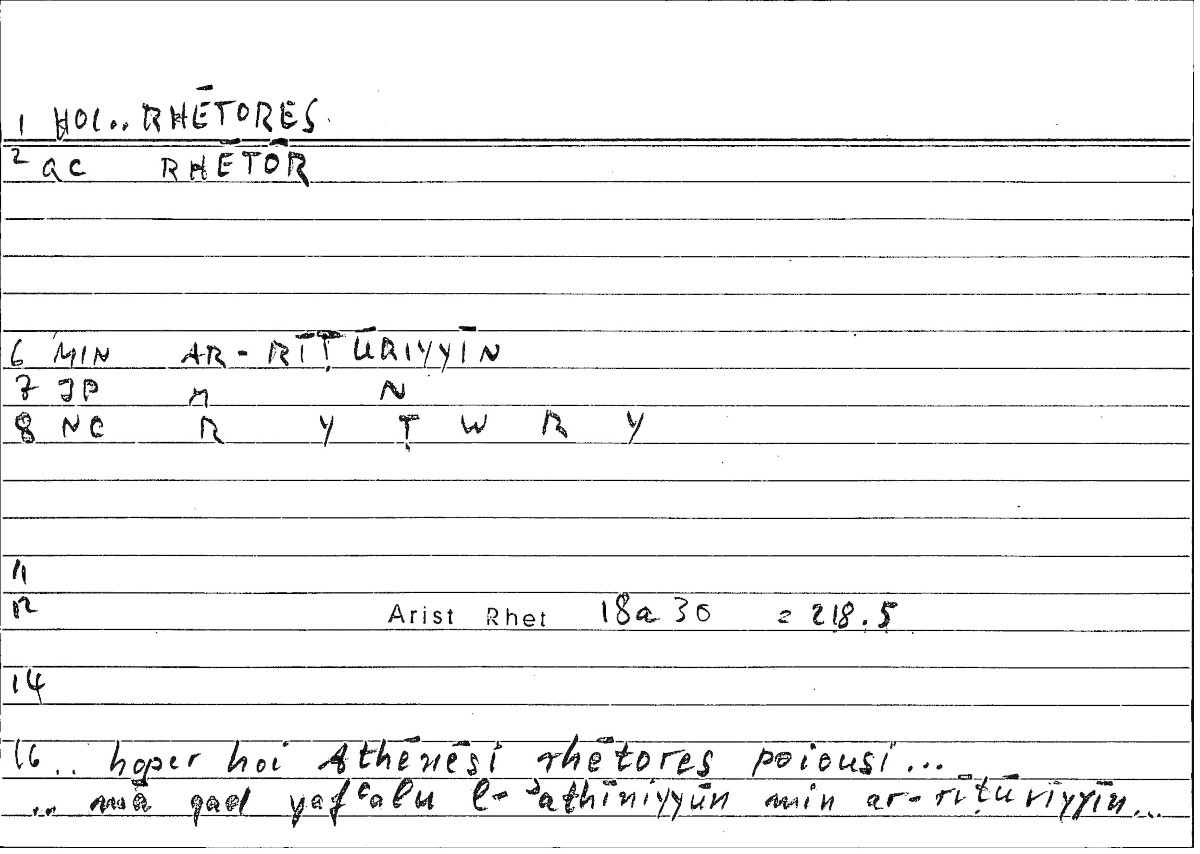 1 HOI.. RHĒTORES
2 QC RHĒTŌR
6 MIN AR-RĪṬŪRIYYĪN
7 JP M N
8 NC R Y Ṭ W R Y
11
12 Arist Rhet 18a 30 = 218.5
14
16 .. hoper hoi Athēnēsi rhētores poiousi...
... mā qad yafʿalu l-ʾathīniyyūn min ar-rīṭūriyyīn...